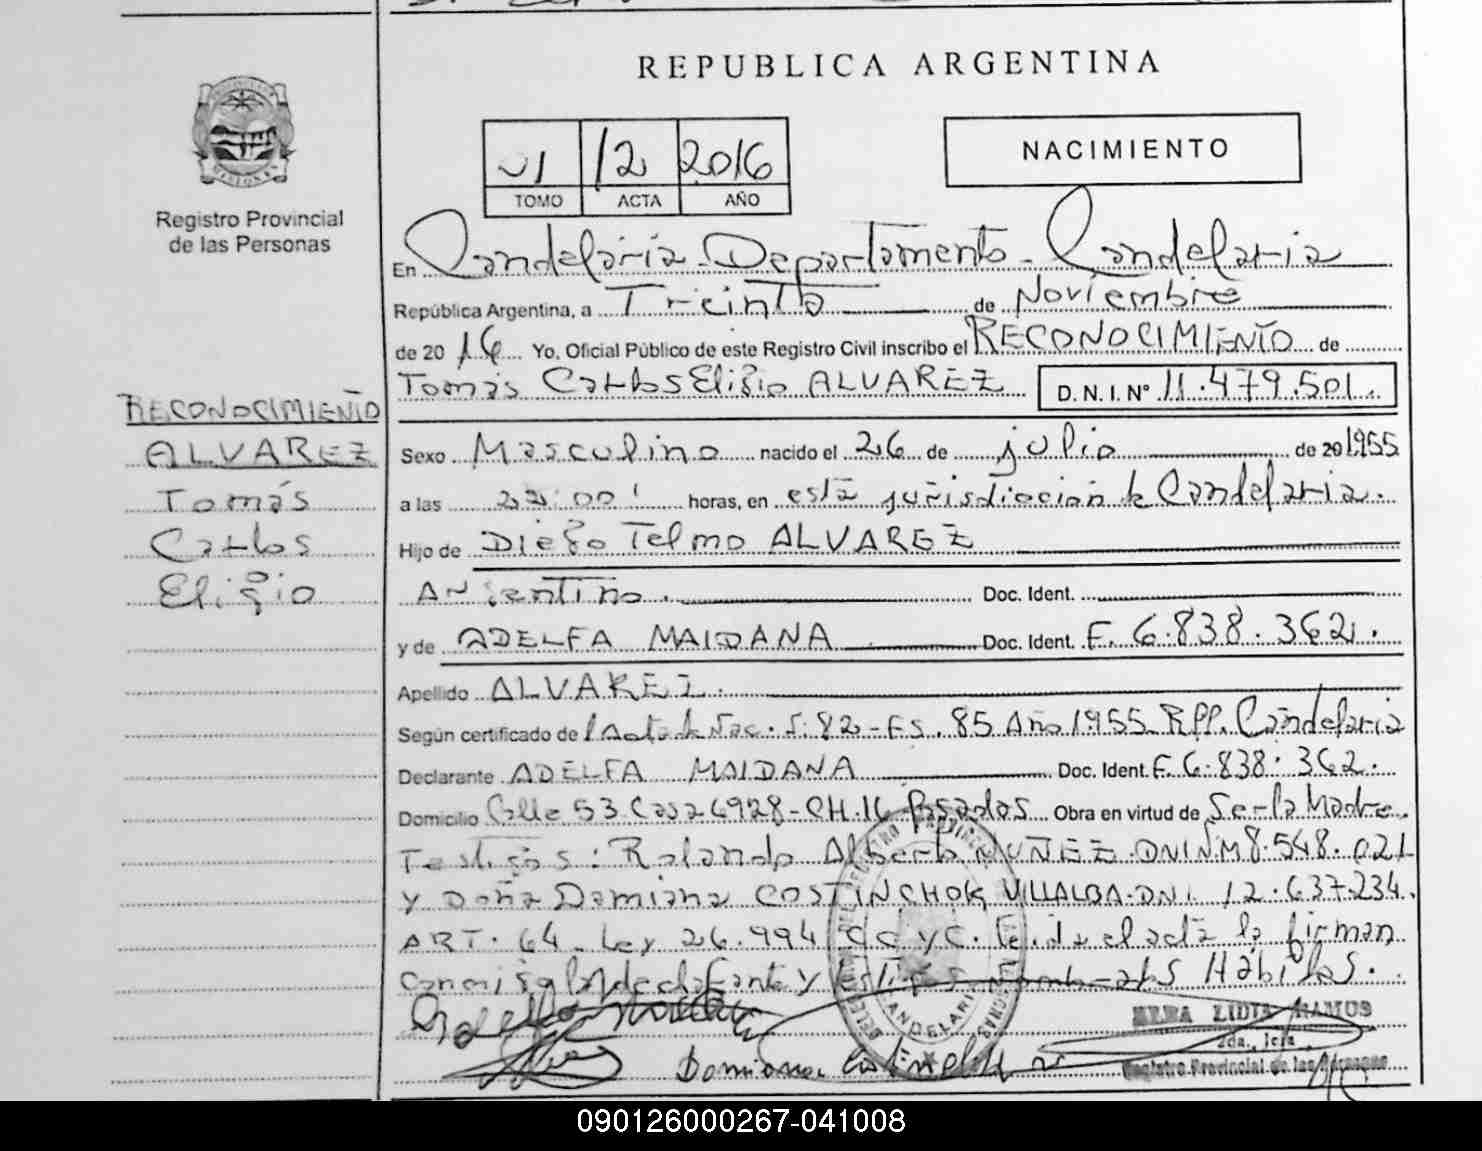 REPUBLICA ARGENTINA
01 12 2016
TOMO ACTA AÑO
NACIMIENTO
Registro Provincial
de las Personas
En Candelaria Departamento Candelaria
República Argentina, a Treinta de Noviembre
de 20 16 Yo. Oficial Público de este Registro Civil inscribo el RECONOCIMIENTO de
Tomás Carlos Eligio ALVAREZ D. N. I. N° 11.479.501.
RECONOCIMIENTO
ALVAREZ
Tomás
Carlos
Eligio
Sexo Masculino nacido el 26 de julio de 20 1955
a las 22:00 horas, en esta jurisdiccion de Candelaria.
Hijo de Diego Telmo ALVAREZ
Argentino. Doc. Ident.
y de ADELFA MAIDANA Doc. Ident. F. 6.838.362.
Apellido ALVAREZ.
Según certificado de Acta de Nac. T. 82 - FS. 85 Año 1955 RPP. Candelaria
Declarante ADELFA MAIDANA Doc. Ident. F. 6.838.362.
Domicilio Calle 53 Casa 6928 - CH. 16 Posadas Obra en virtud de Ser la Madre.
Testigos: Rolando Alberto NUÑEZ DNI N. M 8.548.021
y Doña Damiana COSTINCHOK VILLALBA - DNI. 12.637.234.
ART. 64 Ley 26.994 CC y C. leida el acta la firman
conmigo la declarante y testigos Hábiles.
CANDELARIA
Damiana
LIDIA RAMOS
2da. Jefa
Registro Provincial de las Personas
090126000267-041008